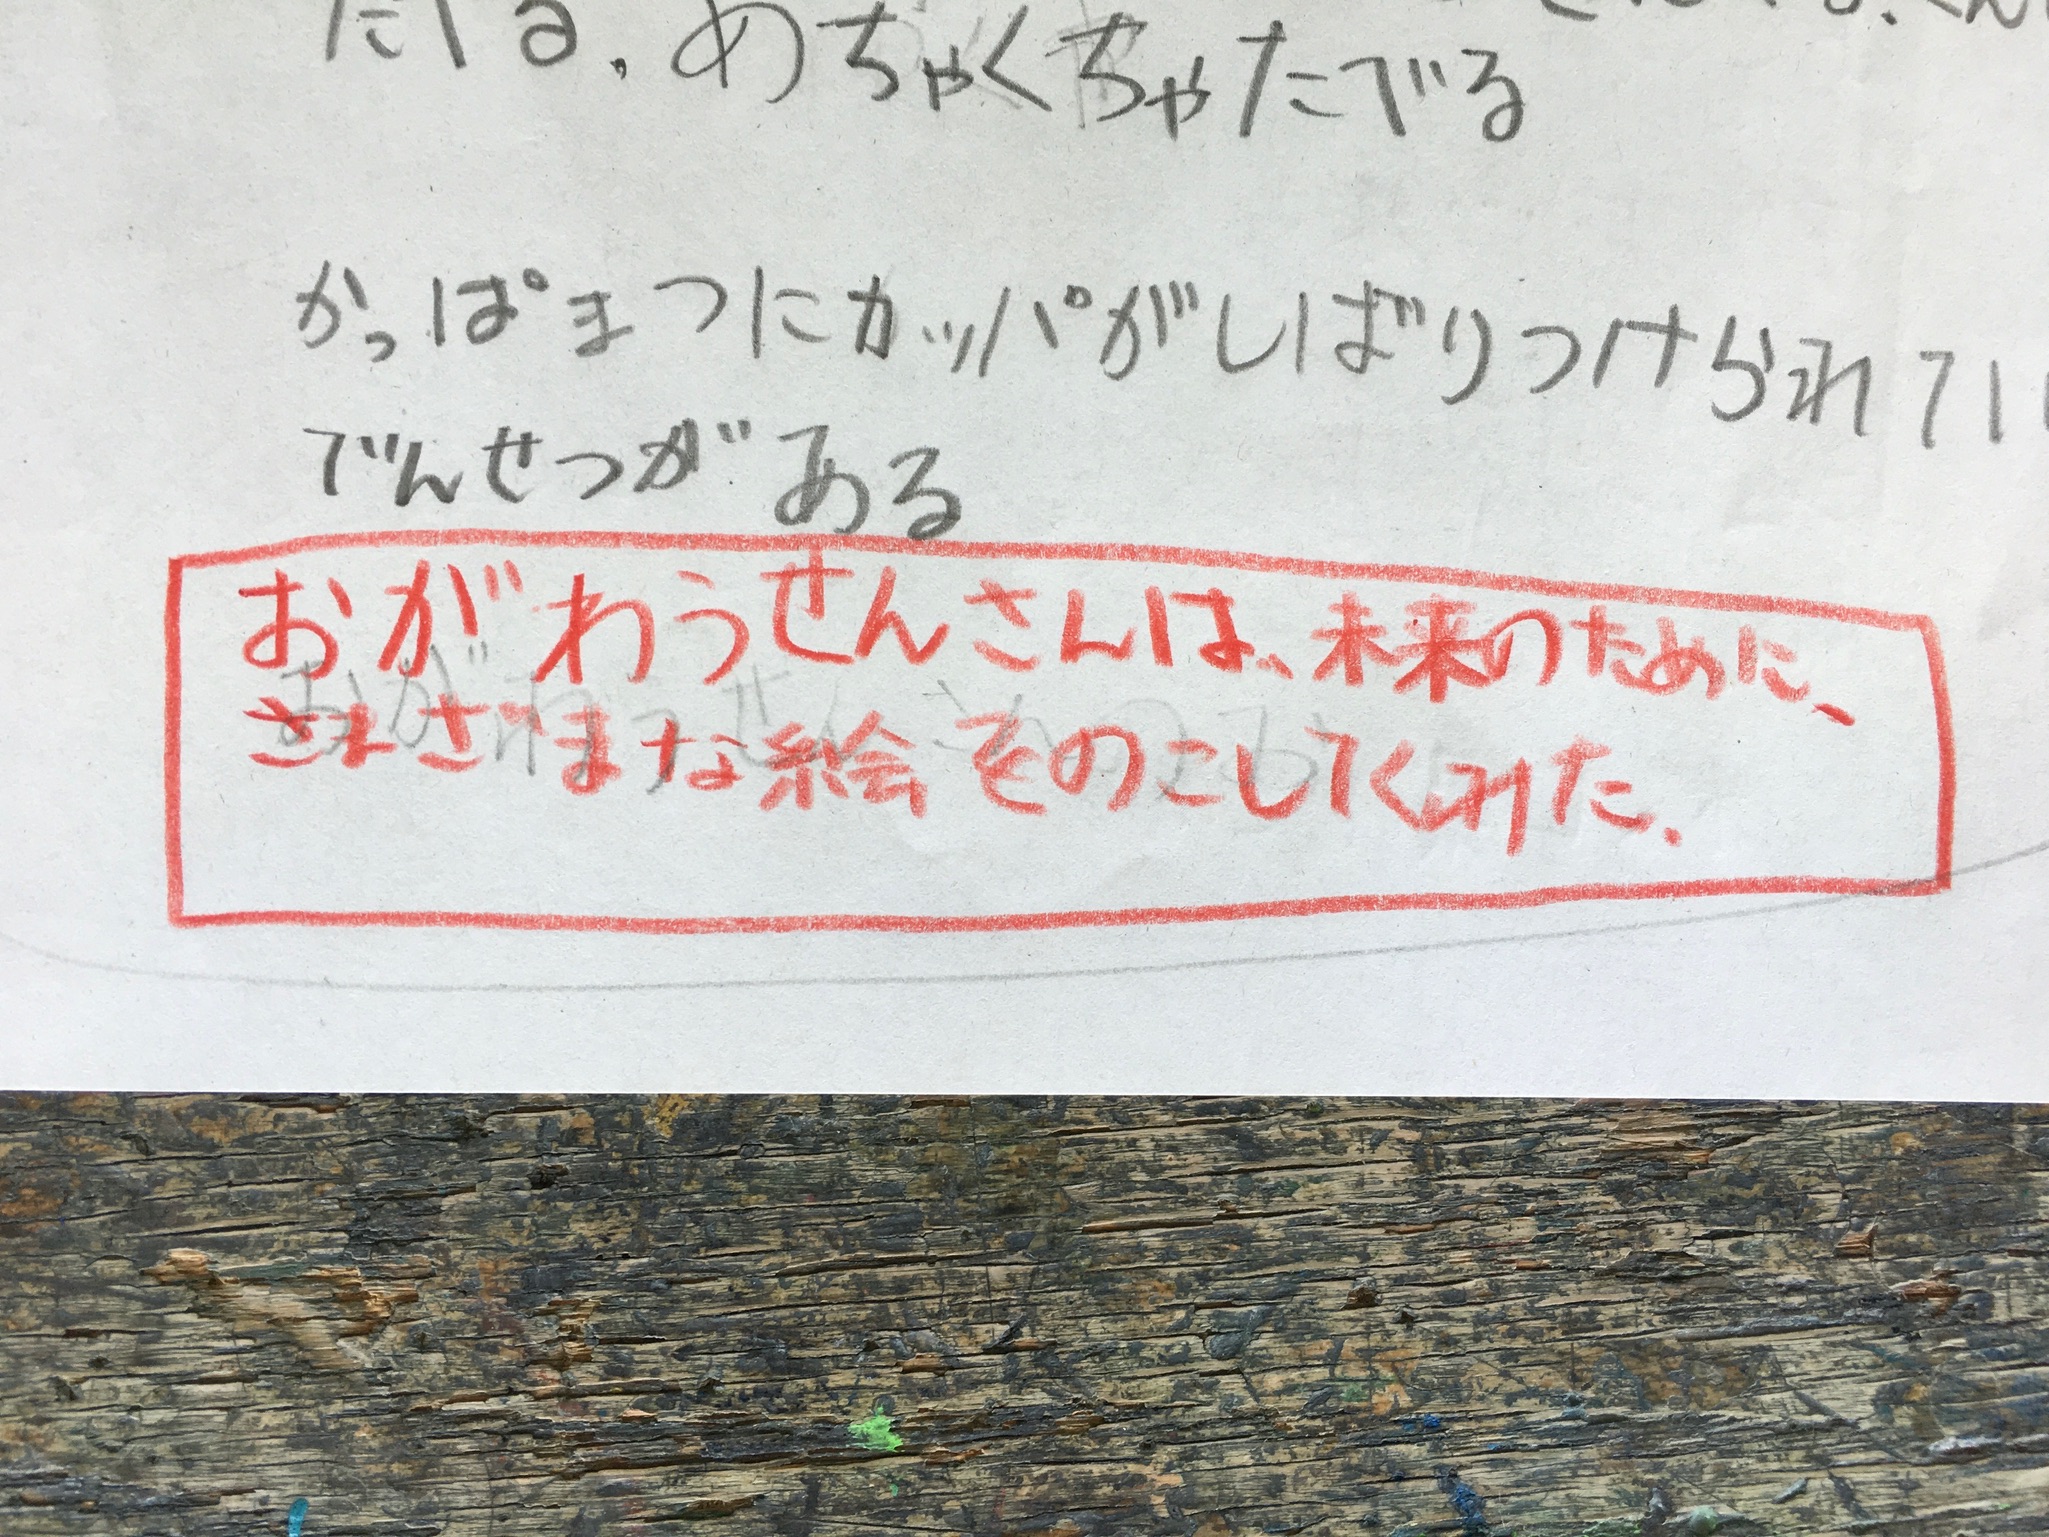 めちゃくちゃたでる
かっぱまつにカッパがしばりつけられてい
でんせつがある
おがわうせんさんは、未来のために、
さまざまな絵をのこしてくれた.